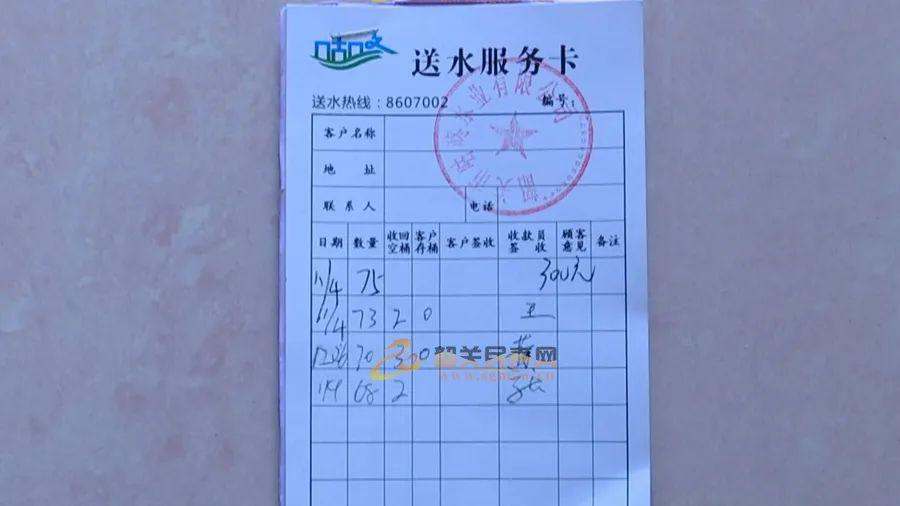 咕咕
送水服务卡
送水热线：8607002
编号：
韶关市 水业有限公司
客户名称
地 址
联系人 电话
日期 数量 收回空桶 客户存桶 客户签收 收款员签收 顾客意见 备注
11/4 75 300元
11/4 73 2 0 王
12/26 70 3 0
1/19 68 2
韶关民声网